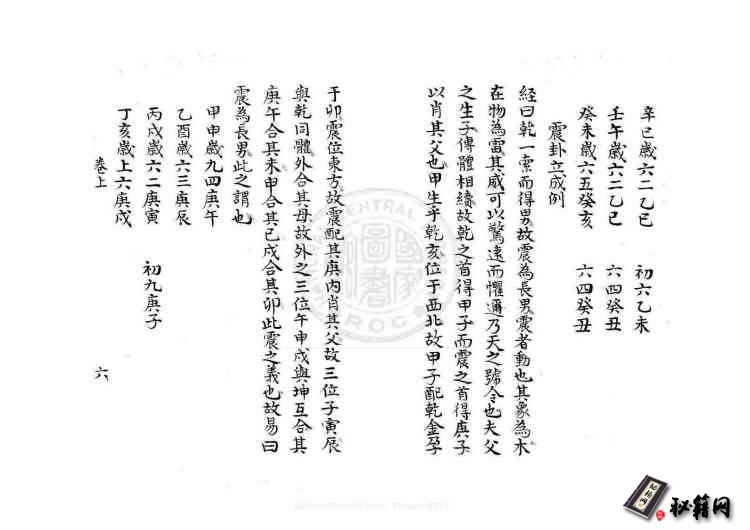 辛巳歲六二乙巳　初六乙未
壬午歲六二乙巳　六四癸丑
癸未歲六五癸亥　六四癸丑
震卦立成例
經曰乾一索而得男故震為長男震者動也其象為木
在物為雷其威可以驚遠而懼邇乃天之號令也夫父
之生子傳體相續故乾之首得甲子而震之首得庚子
以肖其父也甲生乎乾亥位于西北故甲子配乾金孕
于卯震位東方故震配其庚內肖其父故三位子寅辰
與乾同體外合其母故外之三位午申戌與坤互合其
庚午合其未申合其巳戌合其卯此震之義也故易曰
震為長男此之謂也
甲申歲九四庚午
乙酉歲六三庚辰
丙戌歲六二庚寅　初九庚子
丁亥歲上六庚戌
卷上
六
CENTRAL
圖家
書館
R.O.C.
秘籍网